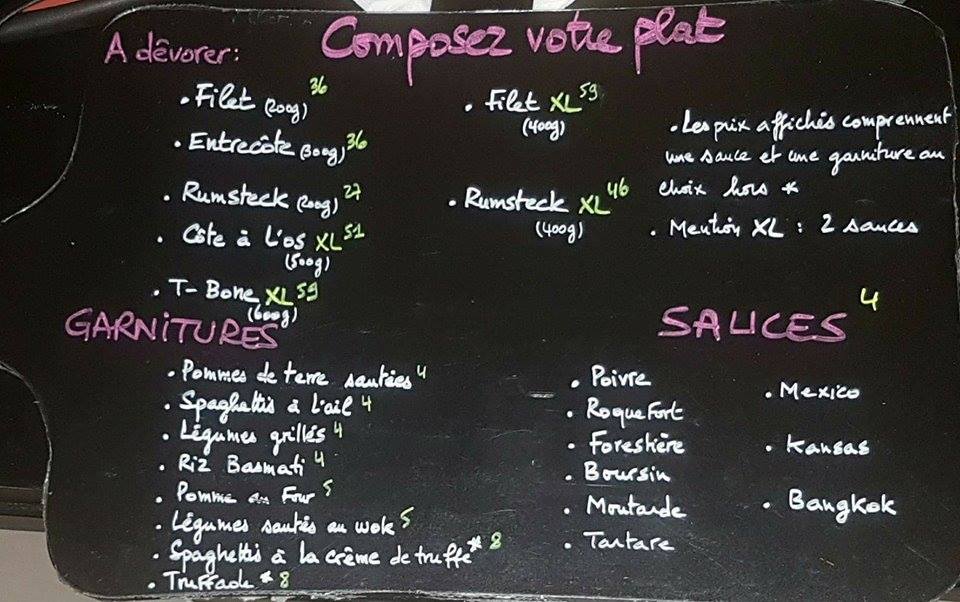 Composez votre plat
A dêvorer:
• Filet (200g) 36
• Entrecôte (300g) 36
• Rumsteck (200g) 27
• Côte à L'os XL 51
(500g)
• T-Bone XL 59
(600g)
• Filet XL 59
(400g)
• Rumsteck XL 46
(400g)
• Les prix affichés comprennent
une sauce et une garniture au
choix hors *
• Mention XL : 2 sauces
GARNITURES
• Pommes de terre sautées 4
• Spaghettis à L'ail 4
• Légumes grillés 4
• Riz Basmati 4
• Pomme au Four 5
• Légumes sautés au wok 5
• Spaghettis à la crème de truffe * 8
• Truffade * 8
SAUCES 4
• Poivre
• Roquefort
• Forestière
• Boursin
• Moutarde
• Tartare
• Mexico
• Kansas
• Bangkok